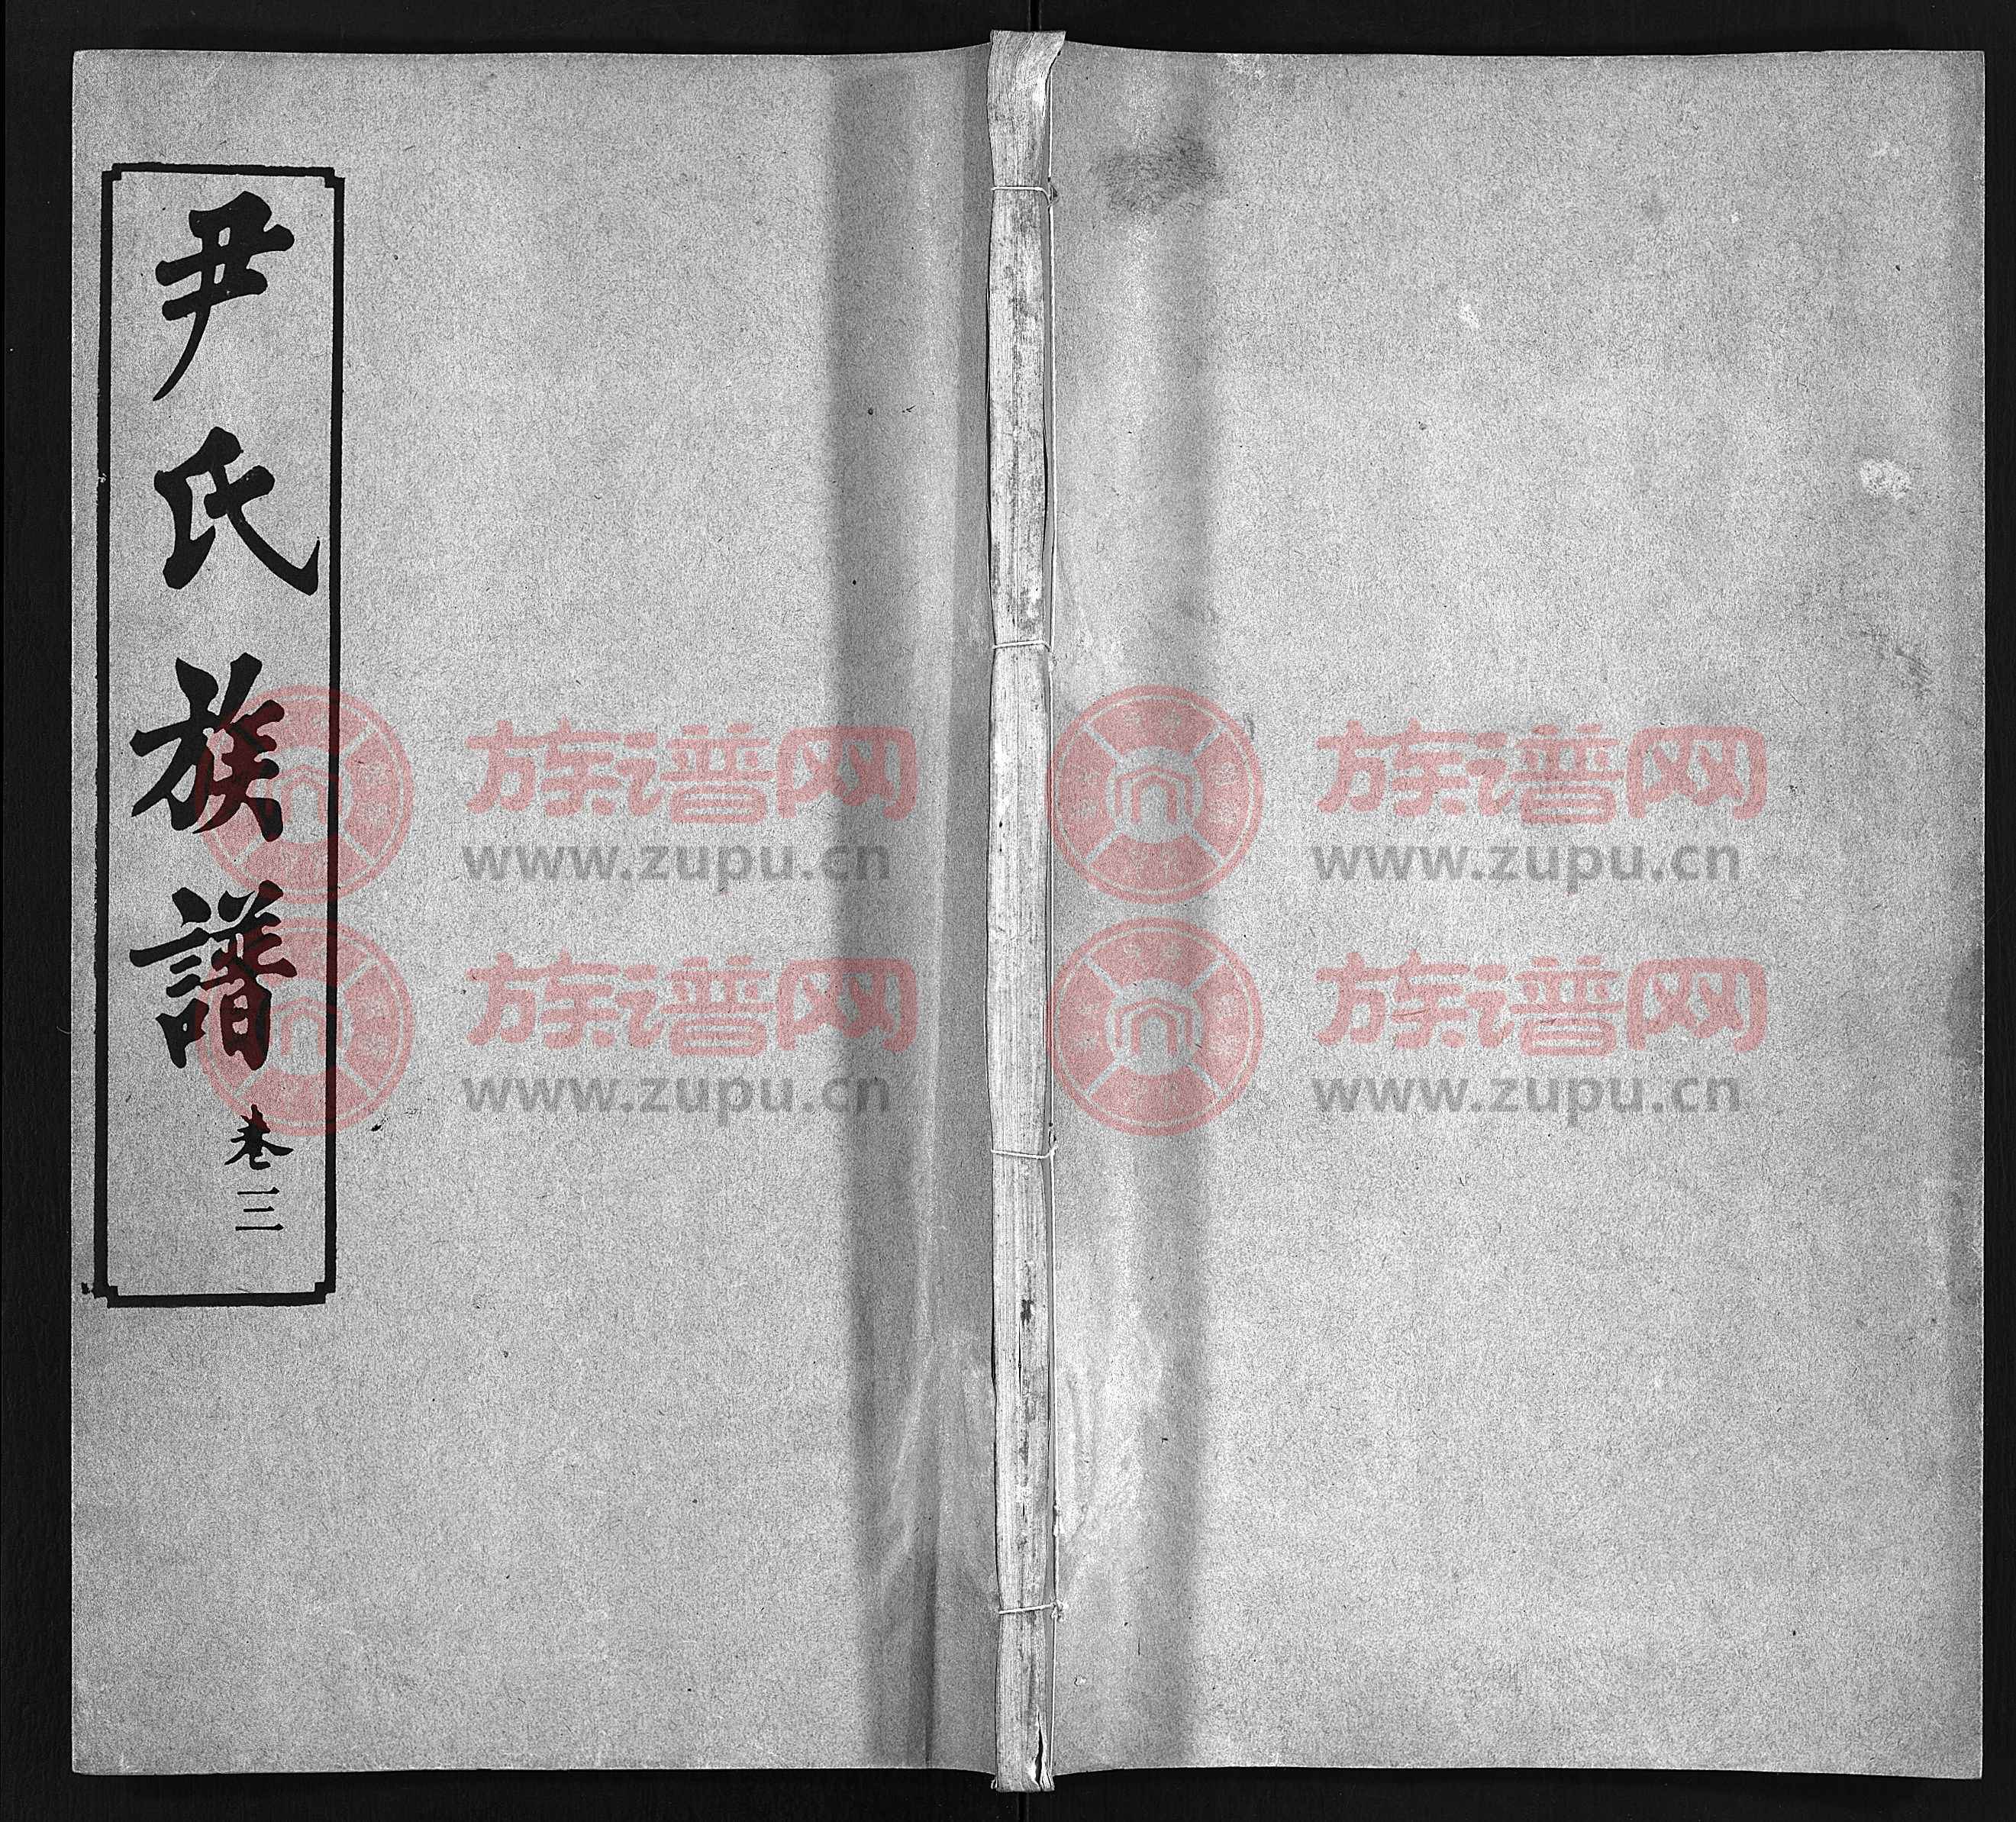 尹氏族譜
卷三
族谱网
www.zupu.cn
族谱网
www.zupu.cn
族谱网
www.zupu.cn
族谱网
www.zupu.cn